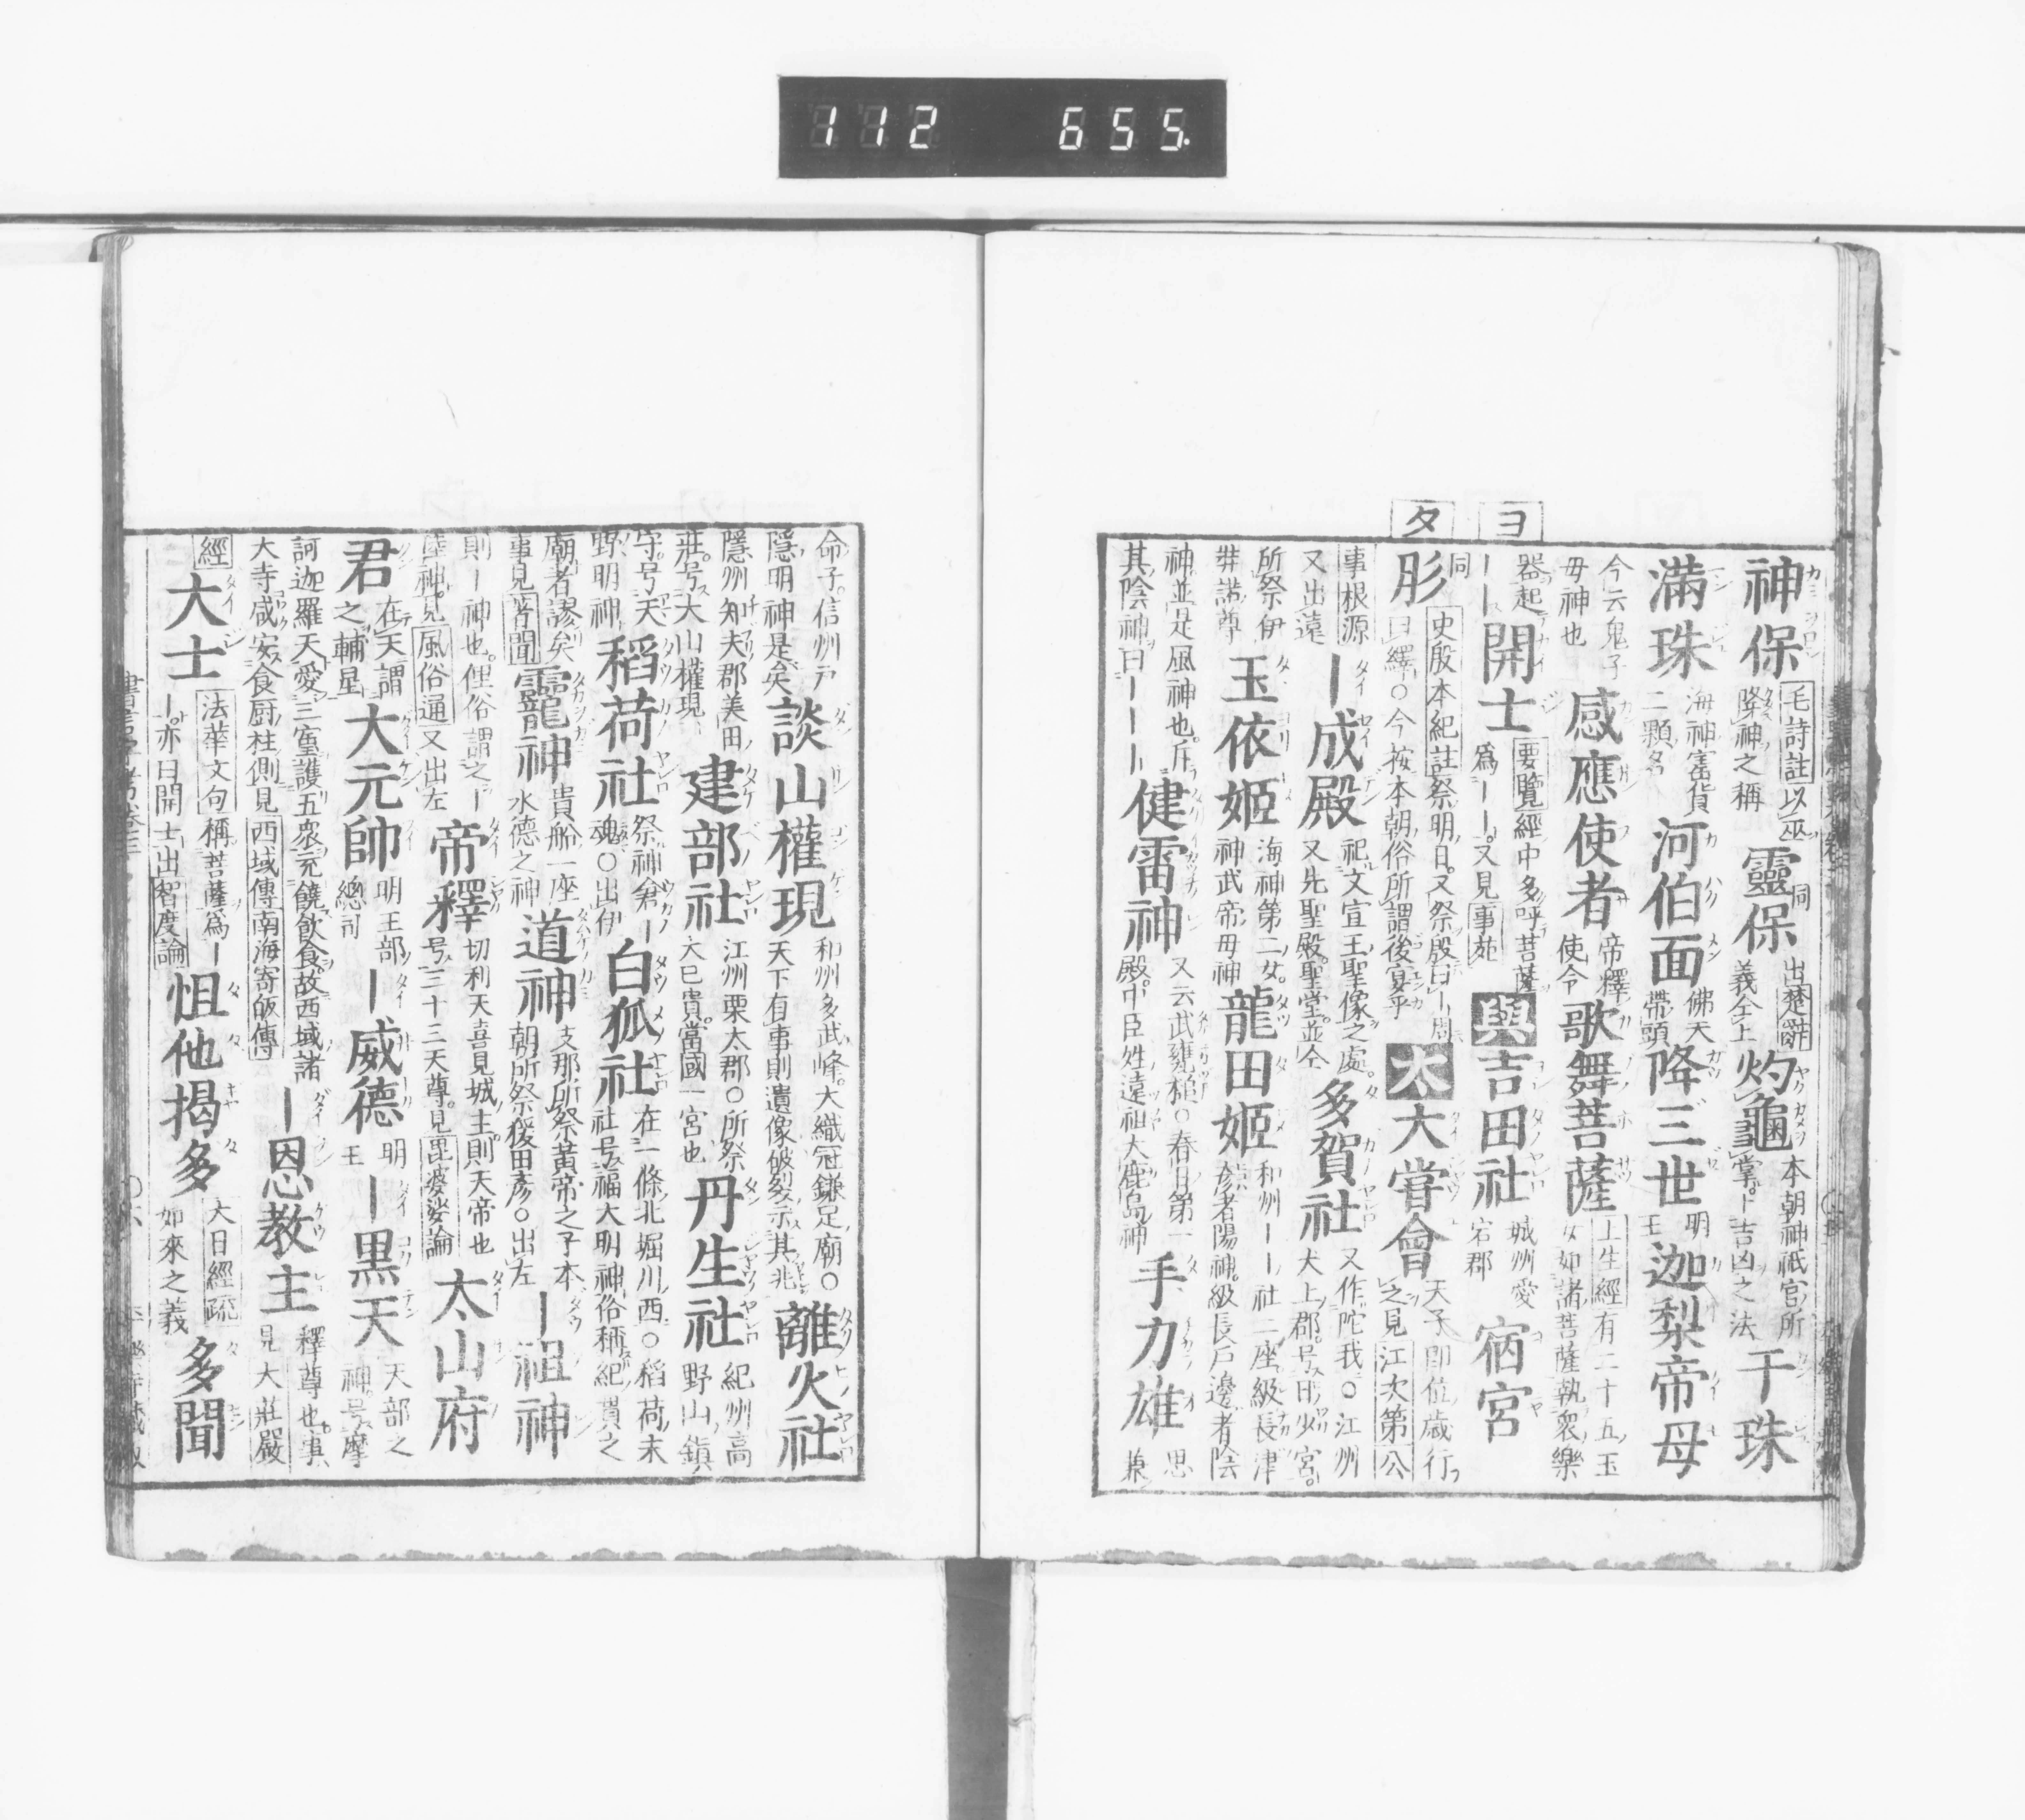 112 655.
ヨ
タ
神保 毛詩註以巫降神之稱 靈保 同 出楚辭義仝上 灼龜 本朝神祇官所掌卜吉凶之法 干珠
滿珠 海神寳貨二顆名 河伯面 佛天帶頭 降三世 明王 迦梨帝母
今云鬼子母神也 感應使者 帝釋使令 歌舞菩薩 上生經有二十五玉女如諸菩薩執衆樂
器起ーー 開士 要覽經中多呼菩薩爲ーー又見事苑 與 吉田社 城州愛宕郡 宿宮
肜 同 史殷本紀註祭明日又祭殷曰ー周曰繹○今按本朝俗所謂後宴乎 太 大甞會 天子即位歳行之見江次第公
事根源又出遠 ー成殿 祀文宣王聖像之處又先聖殿聖堂並仝 多賀社 又作陀我○江州犬上郡号日少宮
所祭伊弉諾尊 玉依姫 海神第二女神武帝母神 龍田姫 和州ーー社二座級長津彦者陽神級長戸邊者陰
神並是風神也斥其陰神曰ーーー 健雷神 又云武甕槌○春日第一殿中臣姓遠祖大鹿島神 手力雄 思兼
命子信州戸隱明神是矣 談山權現 和州多武峰大織冠鎌足廟○天下有事則遺像破裂示其兆 離火社
隱州知夫郡美田莊号大山權現 建部社 江州栗太郡○所祭大巳貴當國一宮也 丹生社 紀州高野山鎮
守号天野明神 稻荷社 祭神倉ー魂○出伊 白狐社 在一條北堀川西○稻荷末社号福大明神俗稱紀貫之
廟者謬矣事見著聞 靇神 貴船一座水德之神 道神 支那所祭黃帝之子本朝所祭猨田彥○出左 ー祖神
則ー神也俚俗謂之ー陸神見風俗通又出左 帝釋 切利天喜見城主則天帝也号三十三天尊見毘婆娑論 太山府
君 在天謂之輔星 大元帥 明王部總司 ー威德 明王 ー黒天 天部之神号摩
訶迦羅天愛三寳護五衆充饒飲食故西域諸大寺咸安食厨柱側見西域傳南海寄皈傳 ー恩教主 釋尊也事見大莊嚴
經 大士 法華文句稱菩薩爲ーー亦曰開士出智度論 怛他揭多 大日經疏如來之義 多聞